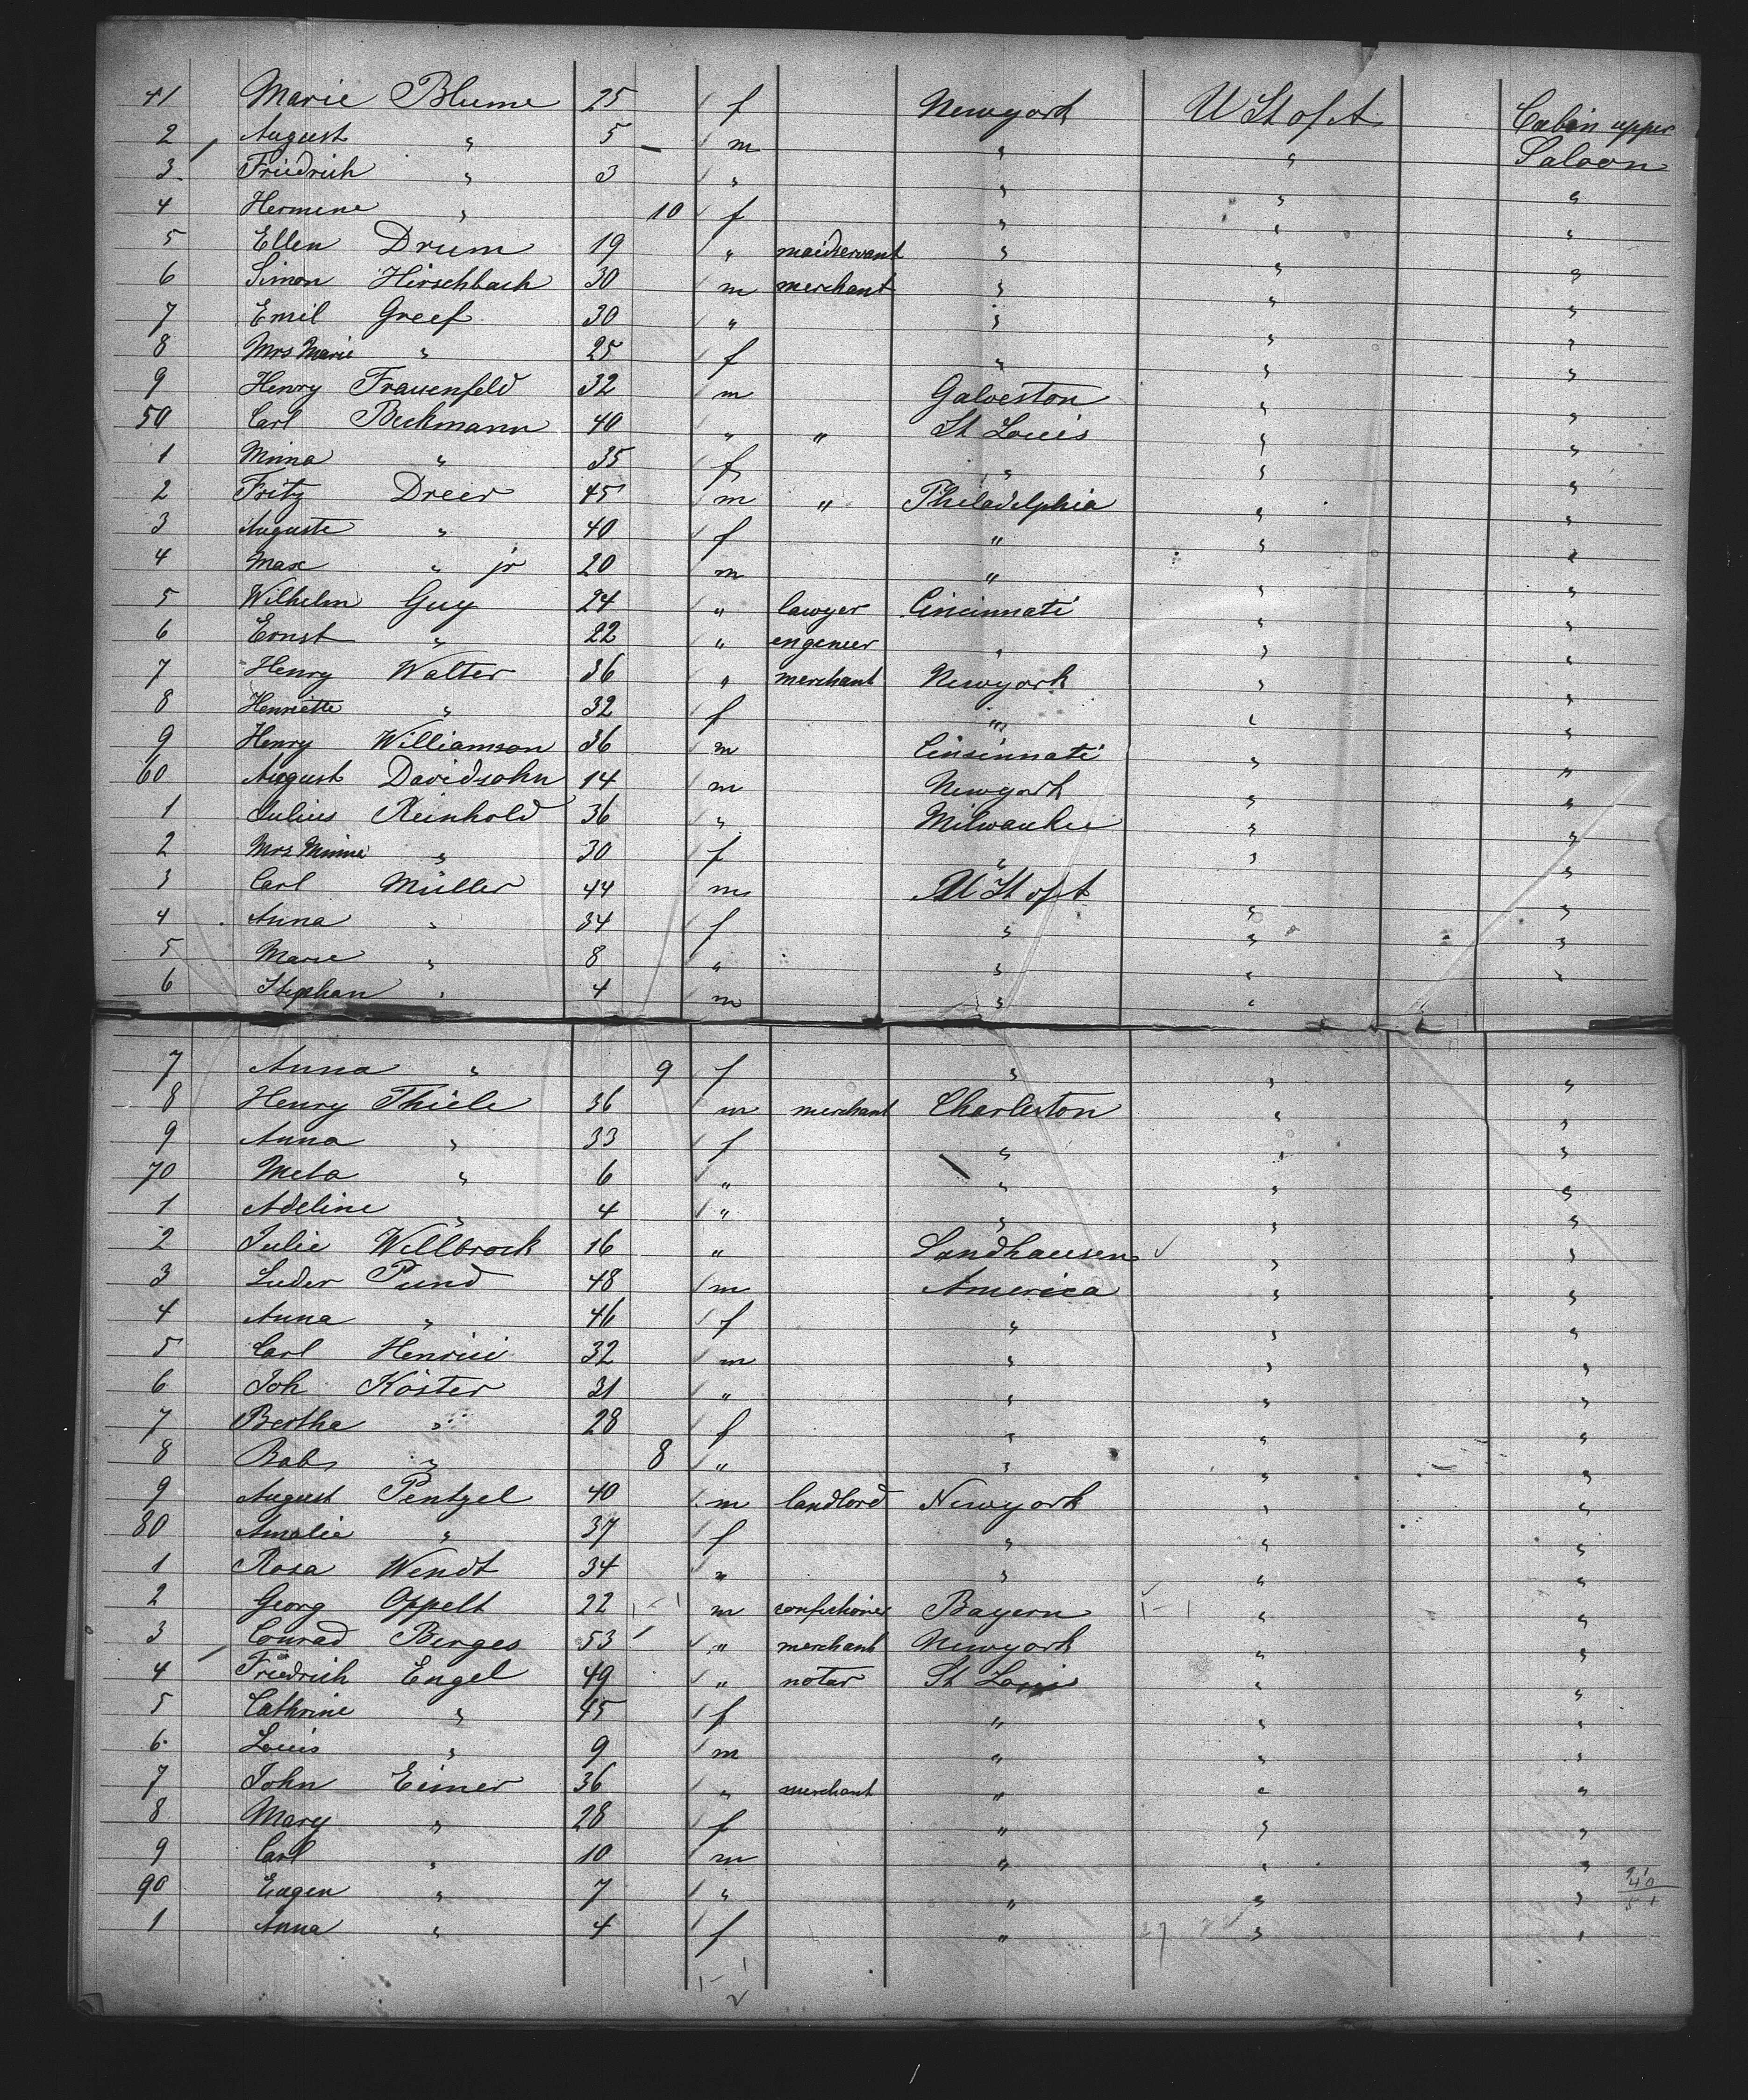 41 Marie Blume 25 f Newyork U St of A Cabin upper
2 August " 5 m " " Saloon
3 Friedrich " 3 " " " "
4 Hermine " 10 f " " "
5 Ellen Drum 19 " maidservant " " "
6 Simon Hirschbach 30 m merchant " " "
7 Emil Greef 30 " " " "
8 Mrs Marie " 25 f " " "
9 Henry Frauenfeld 32 m Galveston " "
50 Carl Beckmann 40 " " St Louis " "
1 Minna " 35 f " " "
2 Fritz Dreer 45 m " Philadelphia " "
3 Auguste " 40 f " " "
4 Max " jr 20 m " " "
5 Wilhelm Guy 24 " lawyer Cincinnati " "
6 Ernst " 22 " engeneer " " "
7 Henry Walter 36 " merchant Newyork " "
8 Henriette " 32 f " " "
9 Henry Williamson 36 m Cinsinnati " "
60 August Davidsohn 14 m Newyork " "
1 Julius Reinhold 36 " Milwaukee " "
2 Mrs Minna " 30 f " " "
3 Carl Müller 44 m U St of A " "
4 Anna " 34 f " " "
5 Marie " 8 " " " "
6 Stephan " 4 m " "
7 Anna " 9 f " " "
8 Henry Thiele 36 m merchant Charleston " "
9 Anna " 33 f " " "
70 Meta " 6 " " " "
1 Adeline " 4 " " " "
2 Julie Willbrock 16 " Sandhausen " "
3 Luder Pund 48 m America " "
4 Anna " 46 f " " "
5 Carl Henrici 32 m " " "
6 Joh Köster 31 " " " "
7 Bertha " 28 f " " "
8 Bab " 8 " " " "
9 August Pentzel 40 m landlord Newyork " "
80 Amalie " 37 f " " "
1 Rosa Wendt 34 " " " "
2 Georg Oppelt 22 m confectioner Bayern " "
3 Conrad Berges 53 " merchant Newyork " "
4 Friedrich Engel 49 " notar St Louis " "
5 Cathrine " 45 f " " "
6 Louis " 9 m " " "
7 John Eimer 36 " merchant " " "
8 Mary " 28 f " " "
9 Carl " 10 m " " "
90 Eugen " 7 " " " "
1 Anna " 4 f " " "